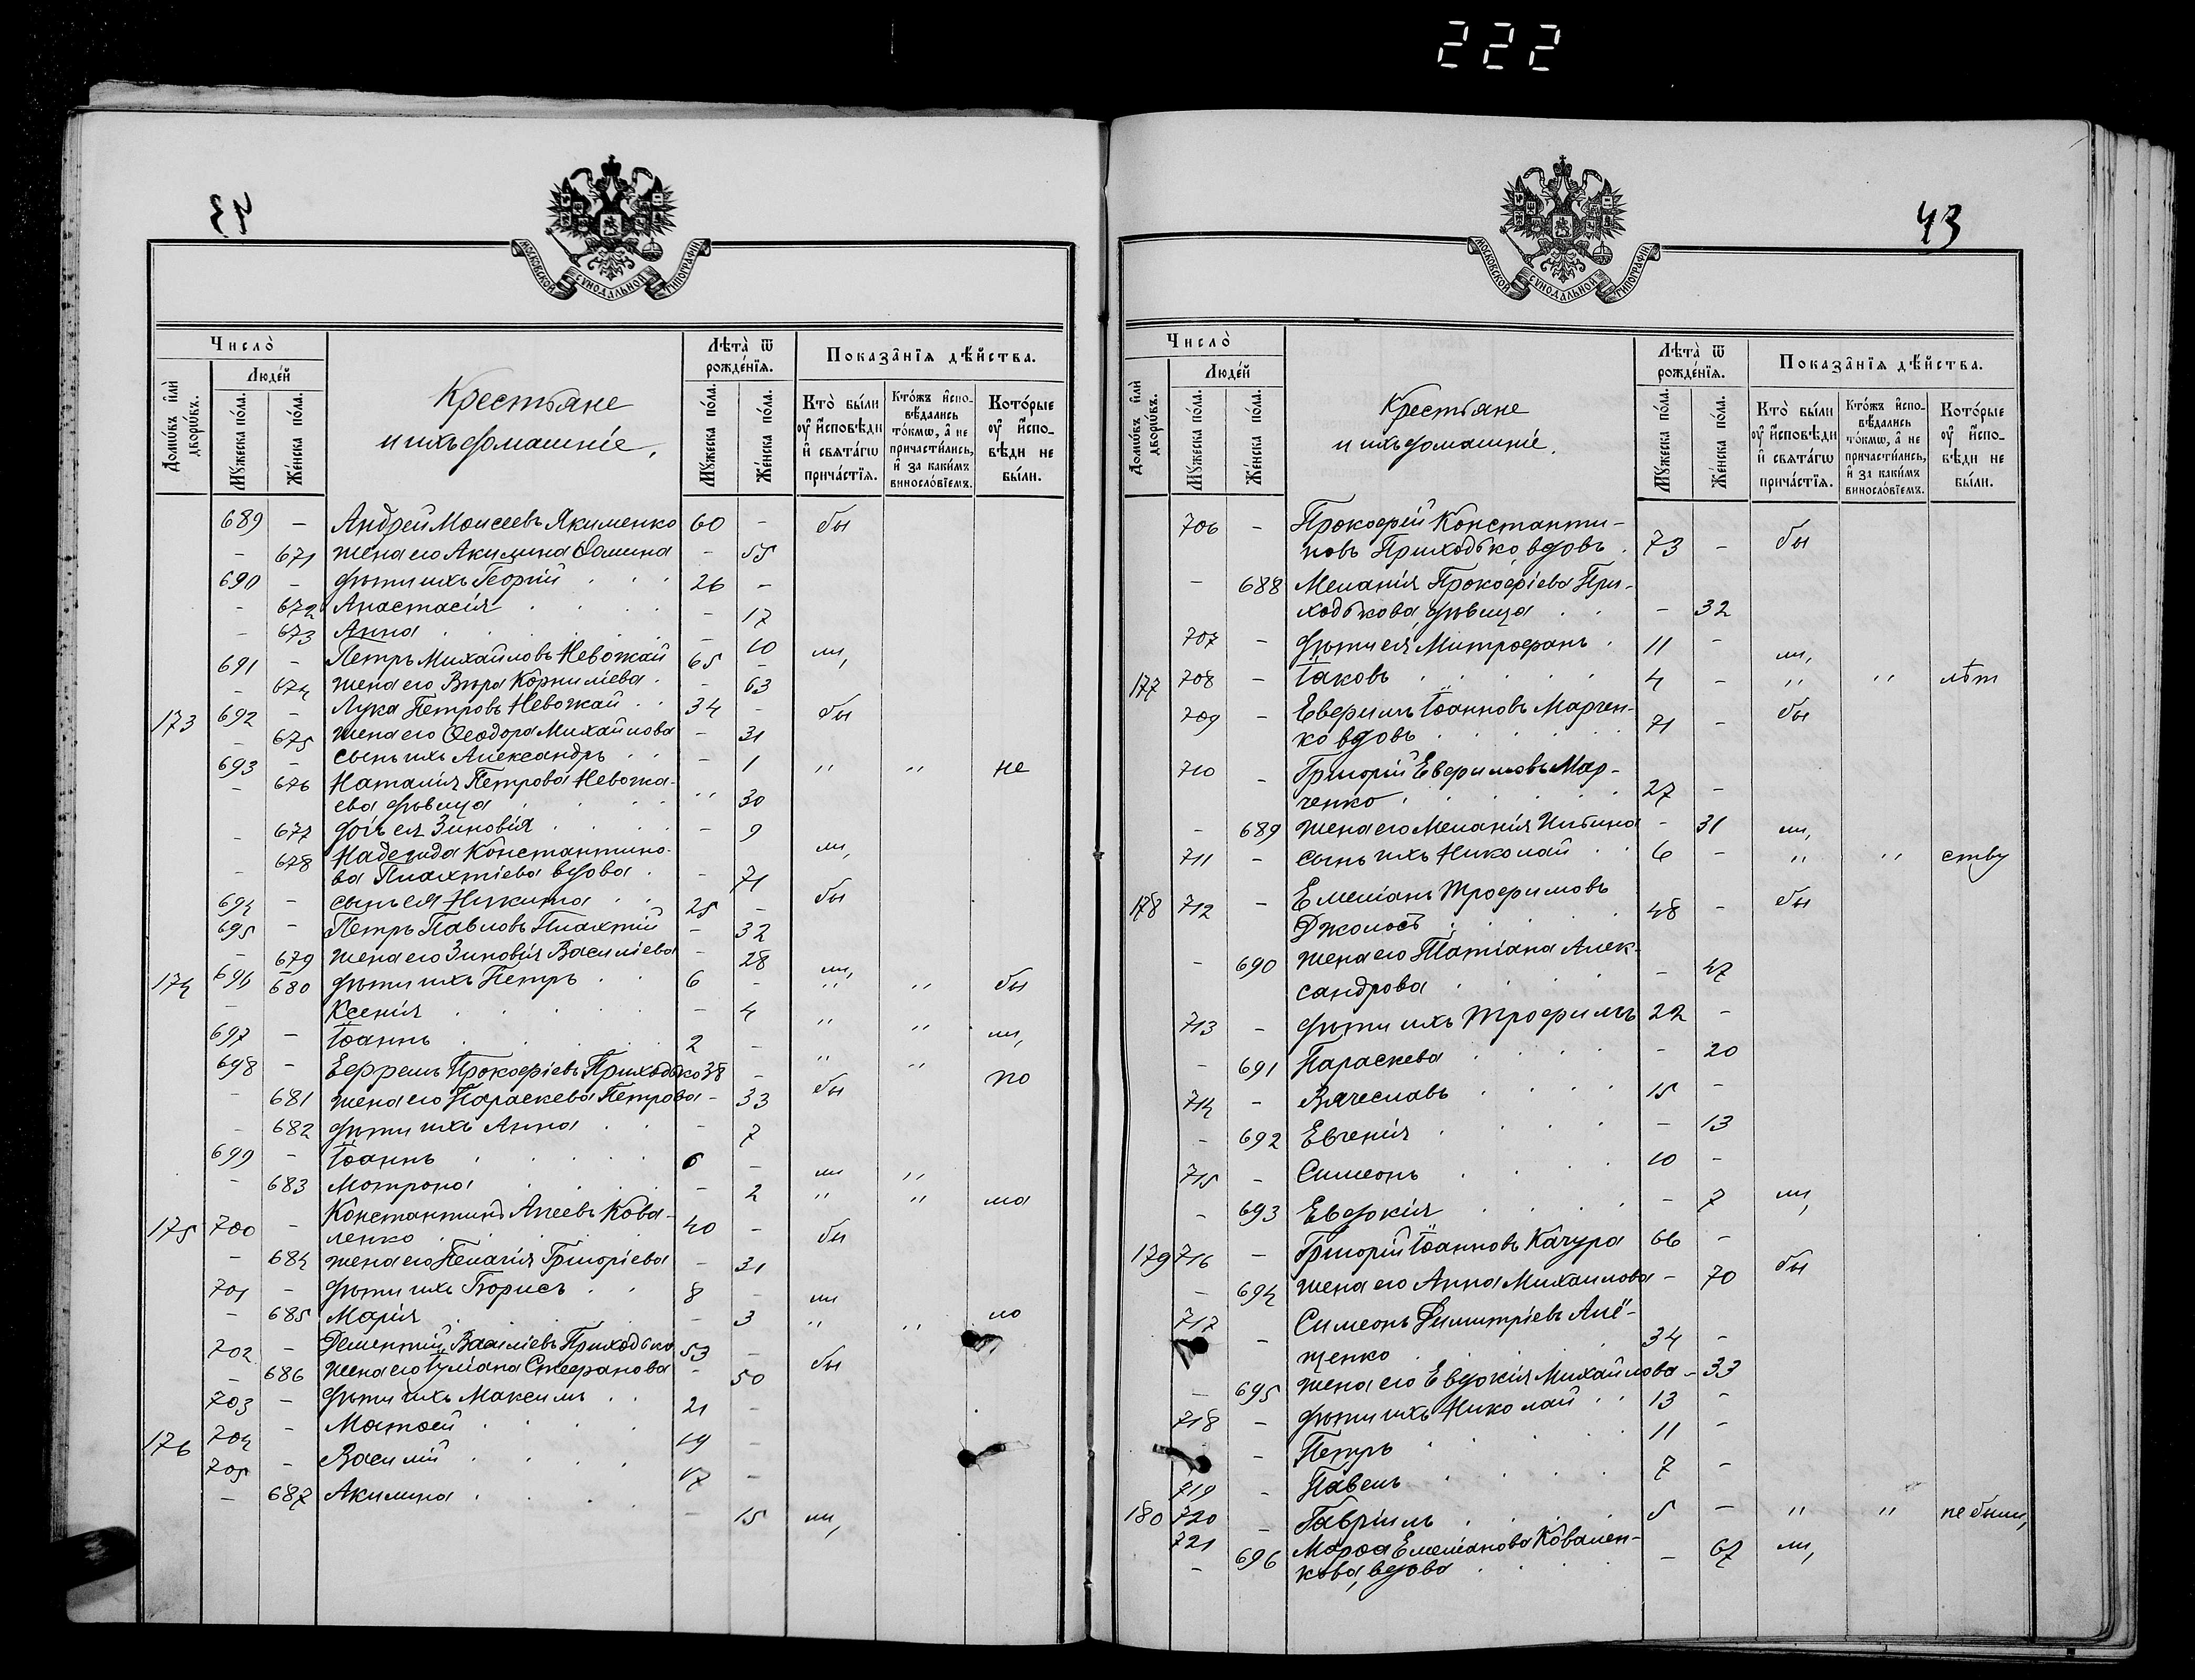 222
43
МОСКОВСКОЙ СѴНОДАЛЬНОЙ ТИПОГРАФІИ
Число̀
Людей
Лѣта̀ ѿ рожде́нїѧ.
Показа̑нїѧ дѣ́йства.
Домѡ́въ и҆лѝ дворѡ́въ.
Мꙋ́жеска по́ла.
Же́нска по́ла.
Крестьяне
и ихъ домашніе.
Мꙋ́жеска по́ла.
Же́нска по́ла.
Кто̀ бы́ли ᲂу҆ и҆́сповѣди и҆ свѧта́гѡ прича́стїѧ.
Кто́жъ и҆спо-вѣ́дались то́кмѡ, а҆ не причасти́лись, и҆ за каки́мъ винословїемъ.
Кото́рые ᲂу҆ и҆́спо-вѣди не бы́ли.
689 - Андрей Моисеевъ Якименко 60 - бы
- 671 жена его Акилина Ѳомина - 55
690 - дѣти ихъ Георгій 26 -
- 672 Анастасія - 17
- 673 Анна - 10 ли,
691 - Петръ Михайловъ Невожай 65 -
- 674 жена его Вѣра Корниліева - 63
173 692 - Лука Петровъ Невожай 34 - бы
- 675 жена его Ѳеодора Михайлова - 31
693 - сынъ ихъ Александръ - 1 " " не
- 676 Наталія Петрова Невожа-
ева дѣвица " 30
- 677 дочь ея Зиновія - 9
- 678 Надежда Константино- ли,
ва Плахтіева вдова - 71
694 - сынъ ея Никита 25 - бы
695 - Петръ Павловъ Плахтій - 32
- 679 жена его Зиновія Василіева - 28
174 696 680 дѣти ихъ Петръ 6 - ли, " " бы
- Ксенія - 4 " "
697 - Іоаннъ 2 - " " ли,
698 - Ефремъ Прокофіевъ Приходько 38 - по
- 681 жена его Параскева Петрова - 33 бы
- 682 дѣти ихъ Анна - 7
699 - Іоаннъ 6 - ли "
- 683 Матрона - 2 " " ма
175 700 - Константинъ Агеевъ Кова-
ленко 40 - бы
- 684 жена его Пелагія Григоріева - 31
701 - дѣти ихъ Борисъ 8 - ли
- 685 Марія - 3 " " ло
702 - Дементій Василіевъ Приходько 53 -
- 686 жена его Іуліана Стефанова - 50 бы
703 - дѣти ихъ Максимъ 21 -
176 704 - Матѳей 19 -
705 - Василій 17 -
- 687 Акилина - 15 ли,
43
МОСКОВСКОЙ СѴНОДАЛЬНОЙ ТИПОГРАФІИ
Число̀
Людей
Лѣта̀ ѿ рожде́нїѧ.
Показа̑нїѧ дѣ́йства.
Домѡ́въ и҆лѝ дворѡ́въ.
Мꙋ́жеска по́ла.
Же́нска по́ла.
Крестьяне
и ихъ домашніе.
Мꙋ́жеска по́ла.
Же́нска по́ла.
Кто̀ бы́ли ᲂу҆ и҆́сповѣди и҆ свѧта́гѡ прича́стїѧ.
Кто́жъ и҆спо-вѣ́дались то́кмѡ, а҆ не причасти́лись, и҆ за каки́мъ винословїемъ.
Кото́рые ᲂу҆ и҆́спо-вѣди не бы́ли.
706 - Прокофій Константи-
новъ Приходько, вдовъ 73 - бы
- 688 Меланія Прокофіева При-
ходькова, дѣвица - 32
707 - дѣти ея Митрофанъ 11 - ли,
177 708 - Іаковъ 4 - " " лѣт
709 - Евфимъ Іоанновъ Марчен-
ко вдовъ 71 - бы
710 - Григорій Евфимовъ Мар-
ченко 27 -
- 689 жена его Меланія Ильина - 31 ли,
711 - сынъ ихъ Николай 6 - " " ству
178 712 - Емеліанъ Трофимовъ бы
Джолосъ 48 -
- 690 жена его Татіана Алек-
сандрова - 47
713 - дѣти ихъ Трофимъ 22 -
- 691 Параскева - 20
714 - Вячеславъ 15 -
- 692 Евгенія - 13
715 - Симеонъ 10 -
- 693 Евдокія - 7 ли,
179 716 - Григорій Іоанновъ Качура 66 -
- 694 жена его Анна Михаилова - 70 бы
717 - Симеонъ Димитріевъ Алё-
щенко 34 -
- 695 жена его Евдокія Михайлова - 33
718 - дѣти ихъ Николай 13 -
- Петръ 11 -
719 - Павелъ 7 -
180 720 - Гавріилъ 5 - " " не были,
721
- 696 Марѳа Емеліанова Ковален-
кова, вдова - 67 ли,